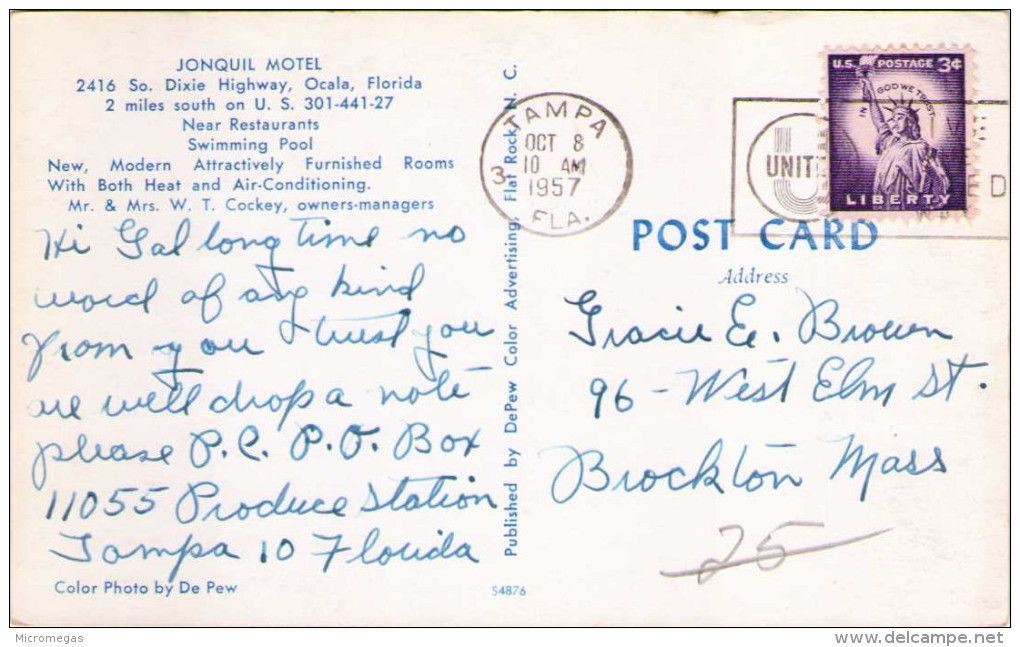 JONQUIL MOTEL
2416 So. Dixie Highway, Ocala, Florida
2 miles south on U. S. 301-441-27
Near Restaurants
Swimming Pool
New, Modern Attractively Furnished Rooms
With Both Heat and Air-Conditioning.
Mr. & Mrs. W. T. Cockey, owners-managers
Hi Gal long time no
word of any kind
from you & trust you
are well drop a note
please P.C. P.O. Box
11055 Produce Station
Tampa 10 Florida
Color Photo by De Pew
Published by DePew Color Advertising, Flat Rock, N. C.
S4876
TAMPA
OCT 8
10 AM
1957
FLA.
3
UNIT
U.S. POSTAGE 3¢
IN GOD WE TRUST
LIBERTY
POST CARD
Address
Gracie E. Brown
96 - West Elm St.
Brockton Mass
25
Micromegas
www.delcampe.net